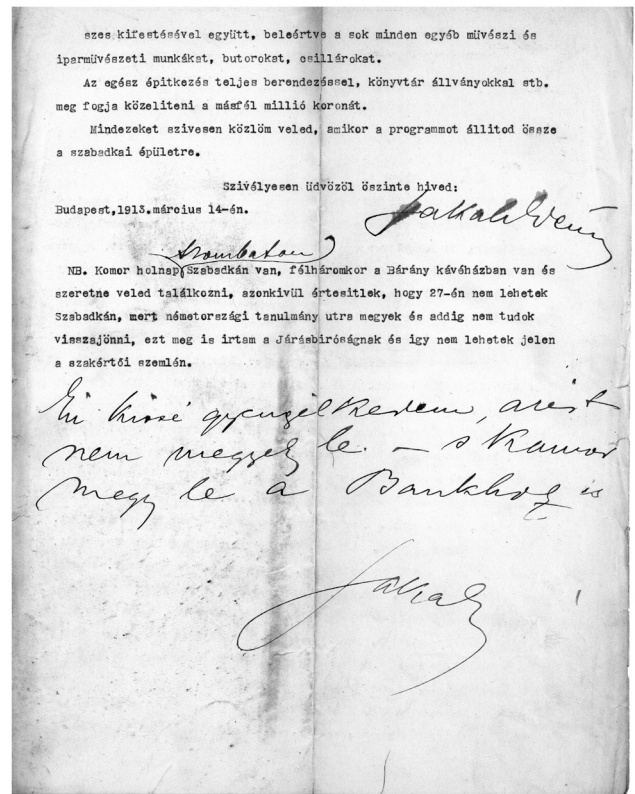 szes kifestésével együtt, beleértve a sok minden egyéb müvészi és
iparmüvészeti munkákat, butorokat, csillárokat.
Az egész épitkezés teljes berendezéssel, könyvtár állványokkal stb.
meg fogja közeliteni a másfél millió koronát.
Mindezeket szivesen közlöm veled, amikor a programmot állitod össze
a szabadkai épületre.
Szivélyesen üdvözöl öszinte hived:
Budapest,1913.március 14-én.
Jakab Dezső
szombaton
NB. Komor holnap Szabadkán van, félháromkor a Bárány kávéházban van és
szeretne veled találkozni, azonkivül értesitlek, hogy 27-én nem lehetek
Szabadkán, mert németországi tanulmány utra megyek és addig nem tudok
visszajönni, ezt meg is irtam a Járásbiróságnak és igy nem lehetek jelen
a szakértői szemlén.
Én kissé gyengélkedem, azért
nem megyek le. – s Komor
megy le a Bankhoz is
Jakab